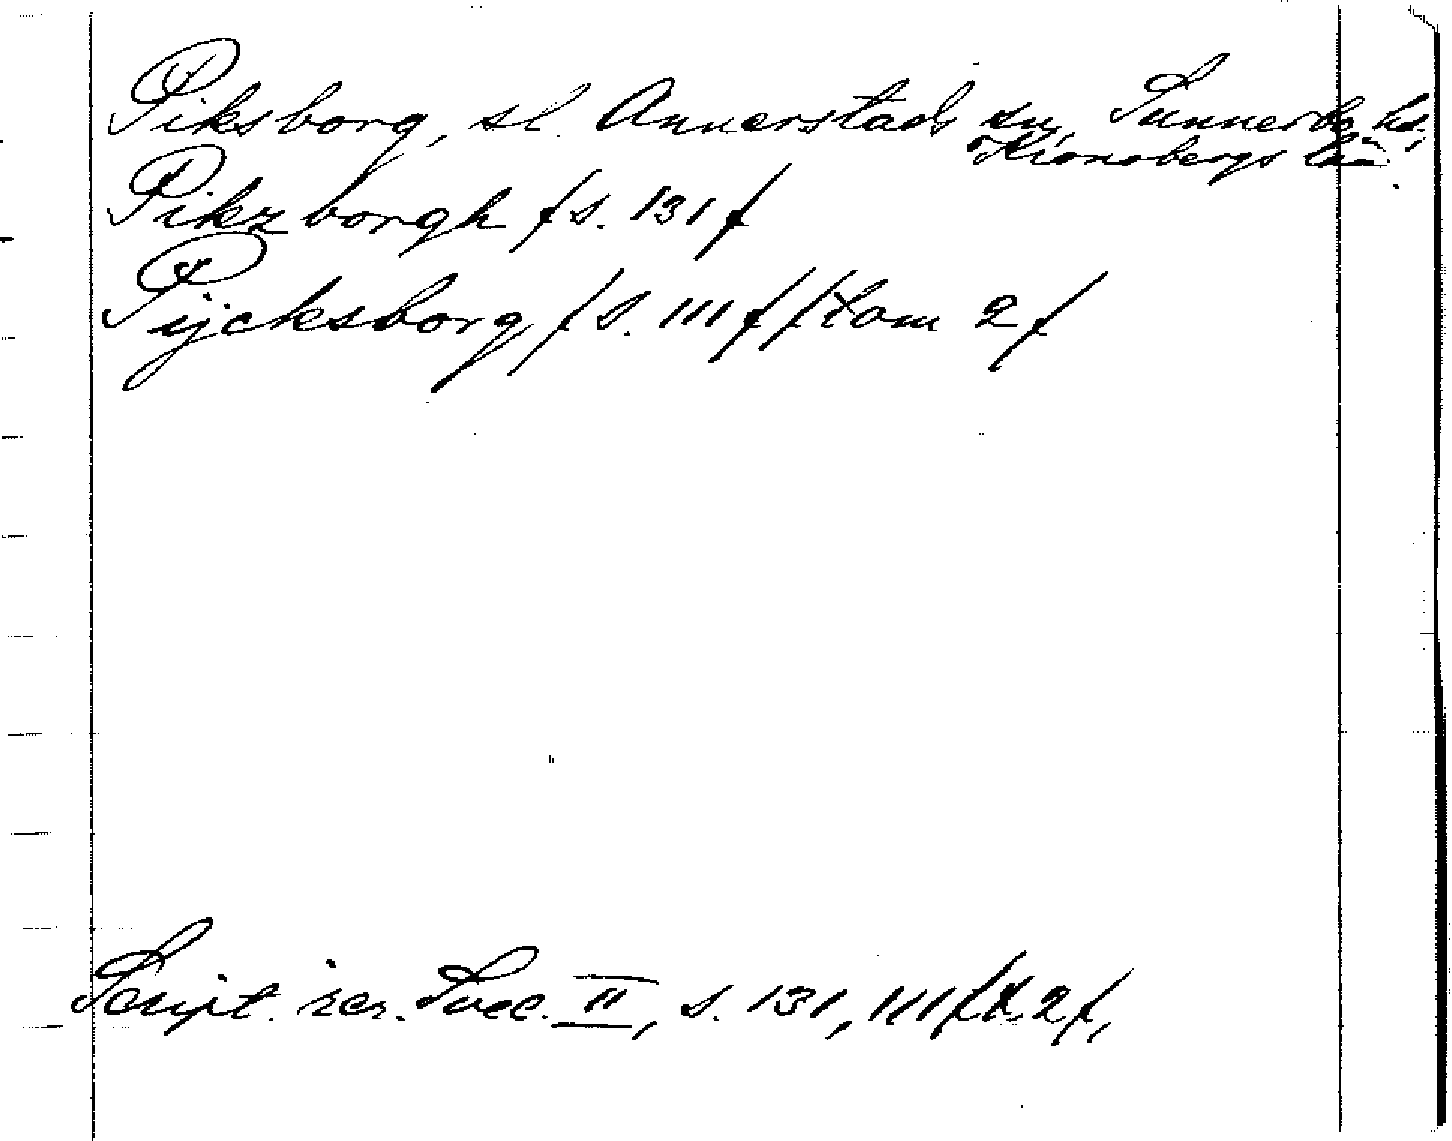 Piksborg, sl. Annerstads sn, Sunnerbo hd,
Kronobergs län.
Pikzborgh /s. 131/
Pijcksborg /s. 111/ /tom 2/
Script. rer. Svec. II, s. 131, 111 /t. 2/,